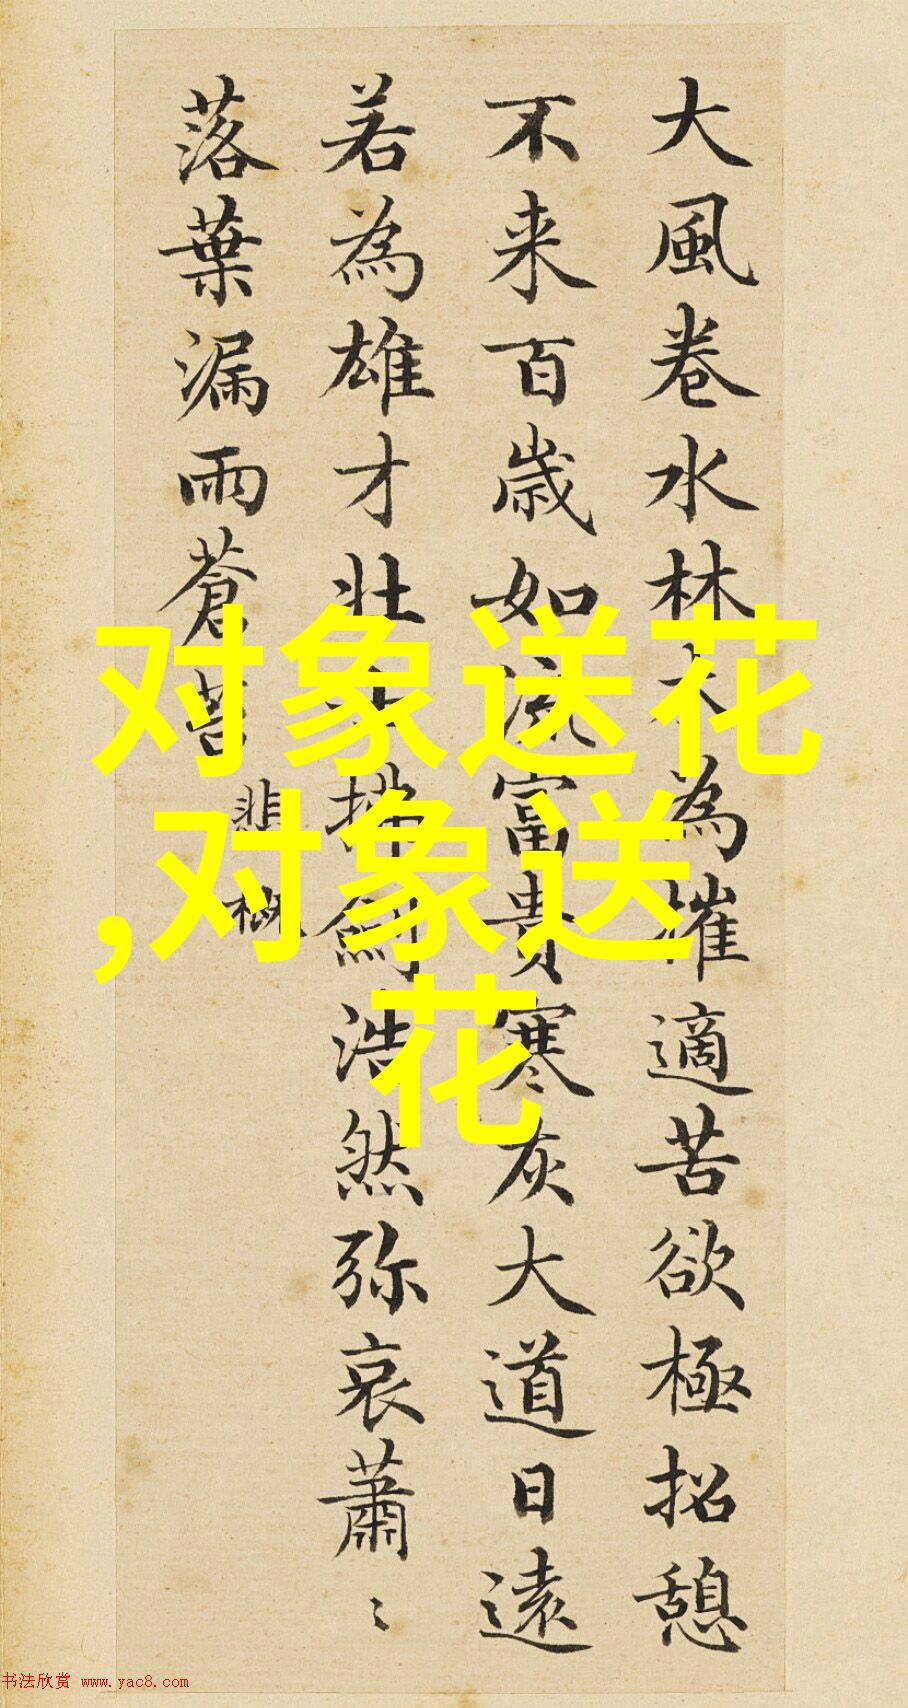 大風卷水林木為摧適苦欲極招憩
不来百歲如流富貴寒灰大道日遠
若為雄才壯士拂劍浩然弥哀蕭〻
落葉漏雨蒼苔
悲概
对象送花
,对象送
花
书法欣赏 www.yac8.com